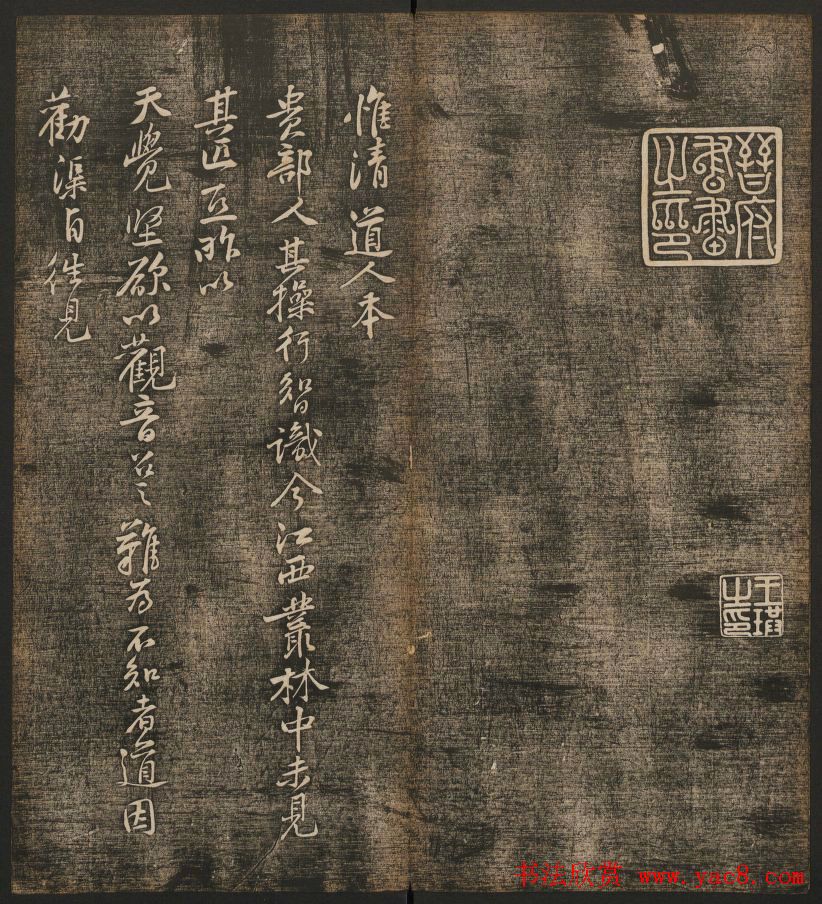 晉府書畫之印
惟清道人本
貴部人其操行智識今江西叢林中未見
其匹亟昨以
天覺堅欲以觀音召之難為不知者道因
勸渠自往見
书法欣赏 www.yac8.com